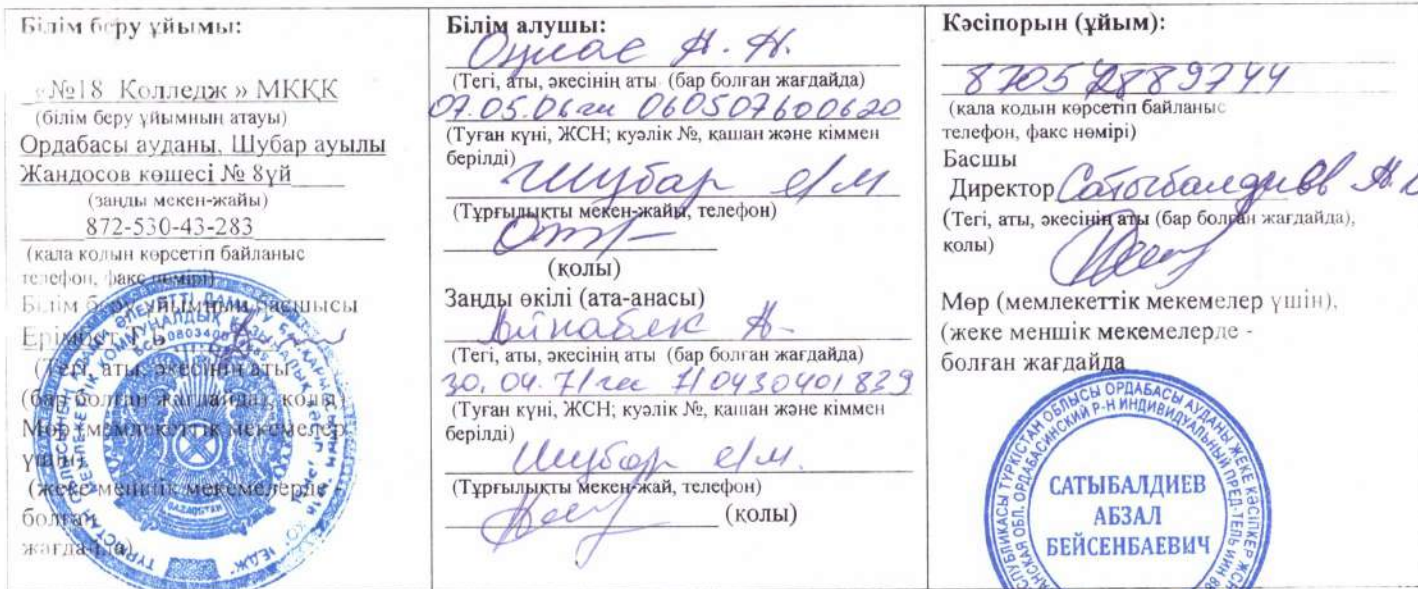 Білім беру ұйымы:
«№18 Колледж » МКҚК
(білім беру ұйымның атауы)
Ордабасы ауданы, Шубар ауылы
Жандосов көшесі № 8үй
(заңды мекен-жайы)
872-530-43-283
(қала кодын көрсетіп байланыс
телефон, факс нөмірі)
Білім беру ұйымның басшысы
Ерімбет Т.Б
(Тегі, аты, әкесінің аты
(бар болған жағдайда), қолы)
Мөр (мемлекеттік мекемелер
үшін)
(жеке меншік мекемелерде
болған
жағдайда)
ҚАЗАҚСТАН
Білім алушы:
(Тегі, аты, әкесінің аты (бар болған жағдайда)
07.05.06 060507600620
(Туған күні, ЖСН; куәлік №, қашан және кіммен
берілді)
Шубар а/м
(Тұрғылықты мекен-жайы, телефон)
(қолы)
Заңды өкілі (ата-анасы)
(Тегі, аты, әкесінің аты (бар болған жағдайда)
30.04.71 710430401839
(Туған күні, ЖСН; куәлік №, қашан және кіммен
берілді)
Шубар а/м.
(Тұрғылықты мекен-жай, телефон)
(қолы)
Кәсіпорын (ұйым):
(қала кодын көрсетіп байланыс
телефон, факс нөмірі)
Басшы
Директор Сатыбалдиев А.
(Тегі, аты, әкесінің аты (бар болған жағдайда),
қолы)
Мөр (мемлекеттік мекемелер үшін),
(жеке меншік мекемелерде -
болған жағдайда
ТҮРКІСТАН ОБЛЫСЫ ОРДАБАСЫ АУДАНЫ ЖЕКЕ КӘСІПКЕР ЖСН
ОБЛ. ОРДАБАСИНСКИЙ Р-Н ИНДИВИДУАЛЬНЫЙ ПРЕД-ТЕЛЬ ИИН
САТЫБАЛДИЕВ
АБЗАЛ
БЕЙСЕНБАЕВИЧ